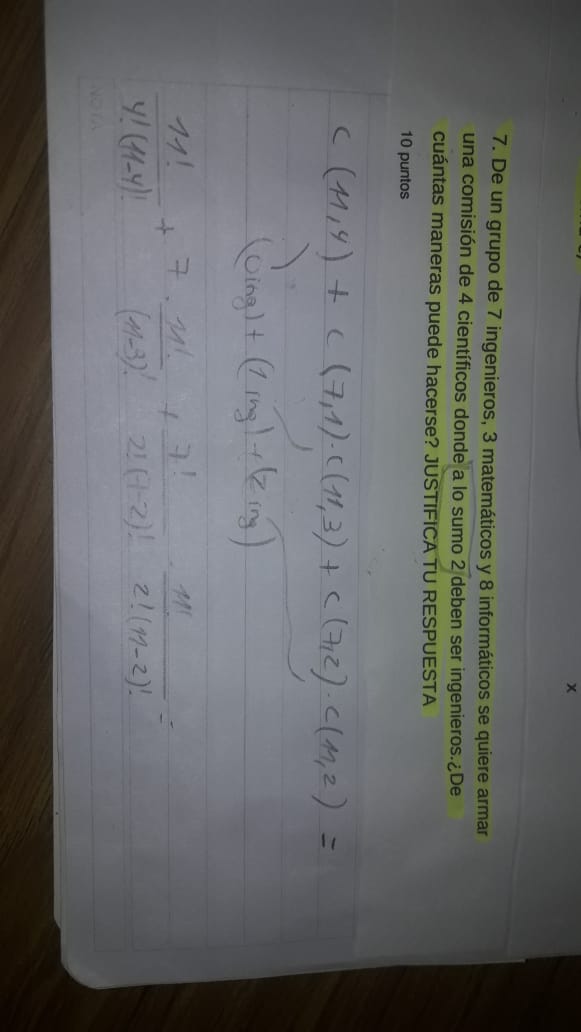 x
7. De un grupo de 7 ingenieros, 3 matemáticos y 8 informáticos se quiere armar
una comisión de 4 científicos donde a lo sumo 2 deben ser ingenieros.¿De
cuántas maneras puede hacerse? JUSTIFICA TU RESPUESTA
10 puntos
C (11,4) + C (7,1)·C(11,3) + C(7,2)·C(11,2) =
(0 ing) + (1 ing) + (2 ing)
11!/4!(11-4)! + 7 · 11!/(11-3)! + 7!/2!(7-2)! · 11!/2!(11-2)! =
NOTA